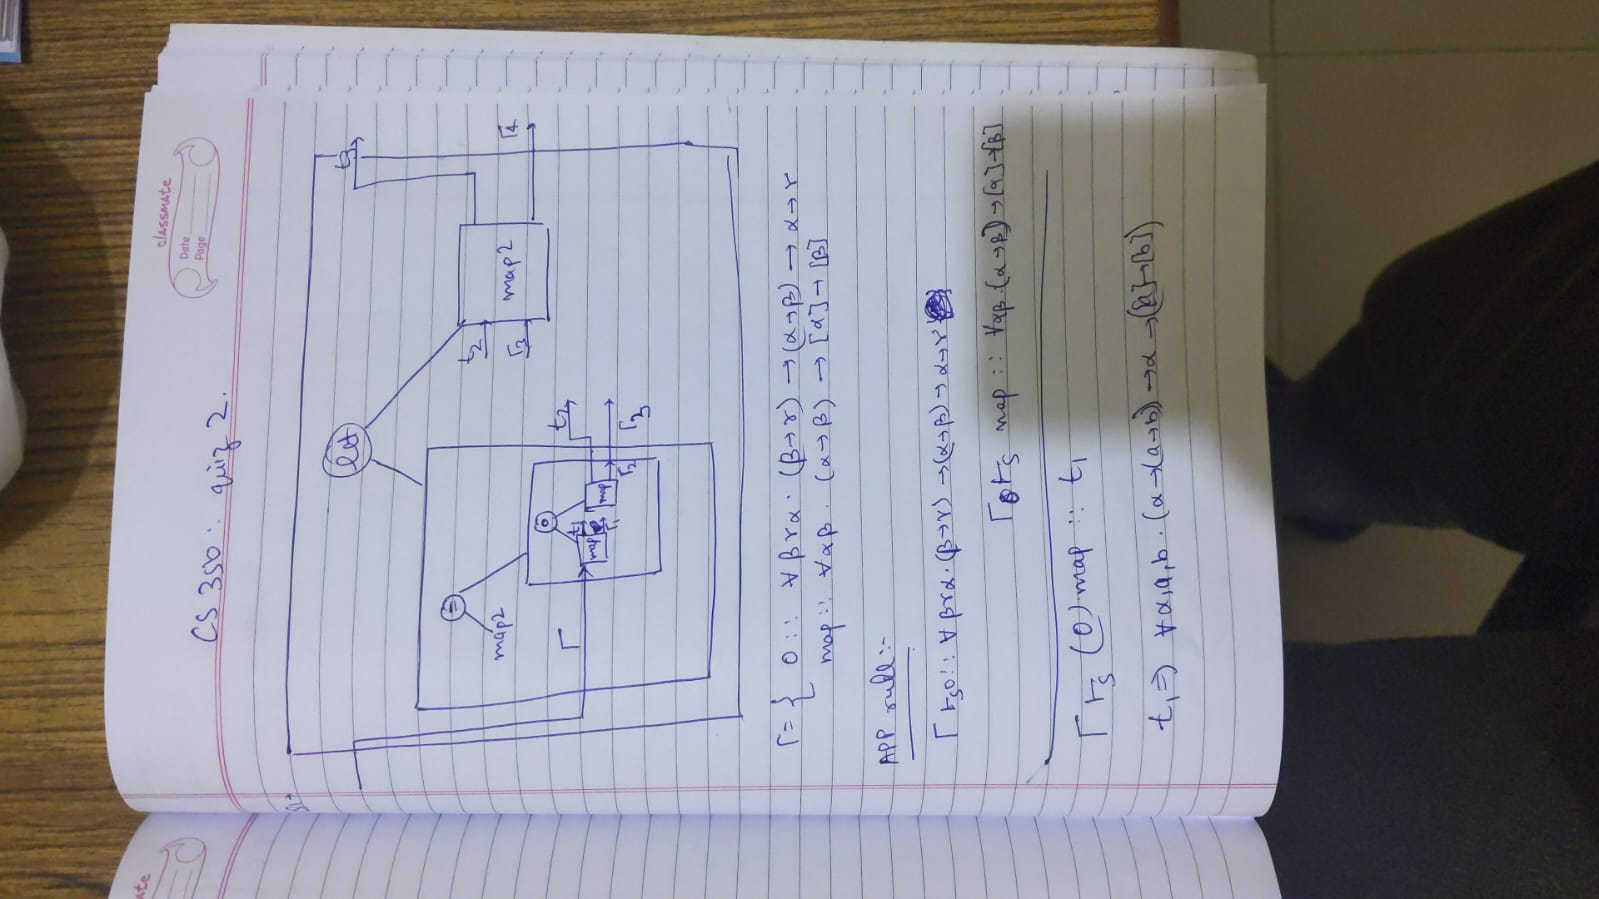 ate
classmate
Date
Page
CS 350: quiz 2.
let
t3
=
map2
t2
Γ3
map2
Γ4
o
Γ
t1
t2
map
map
Γ1
Γ2
Γ3
Γ = { o :: ∀ β γ α . (β → γ) → (α → β) → α → γ
map :: ∀ α β . (α → β) → [α] → [β]
APP rule :-
Γ ⊢s o :: ∀ β γ α . (β → γ) → (α → β) → α → γ
Γ ⊢s map :: ∀ α β . (α → β) → [α] → [β]
Γ ⊢s (o) map :: t1
t1 ⇒ ∀ α, a, b . (α → (a → b)) → α → ([a] → [b])